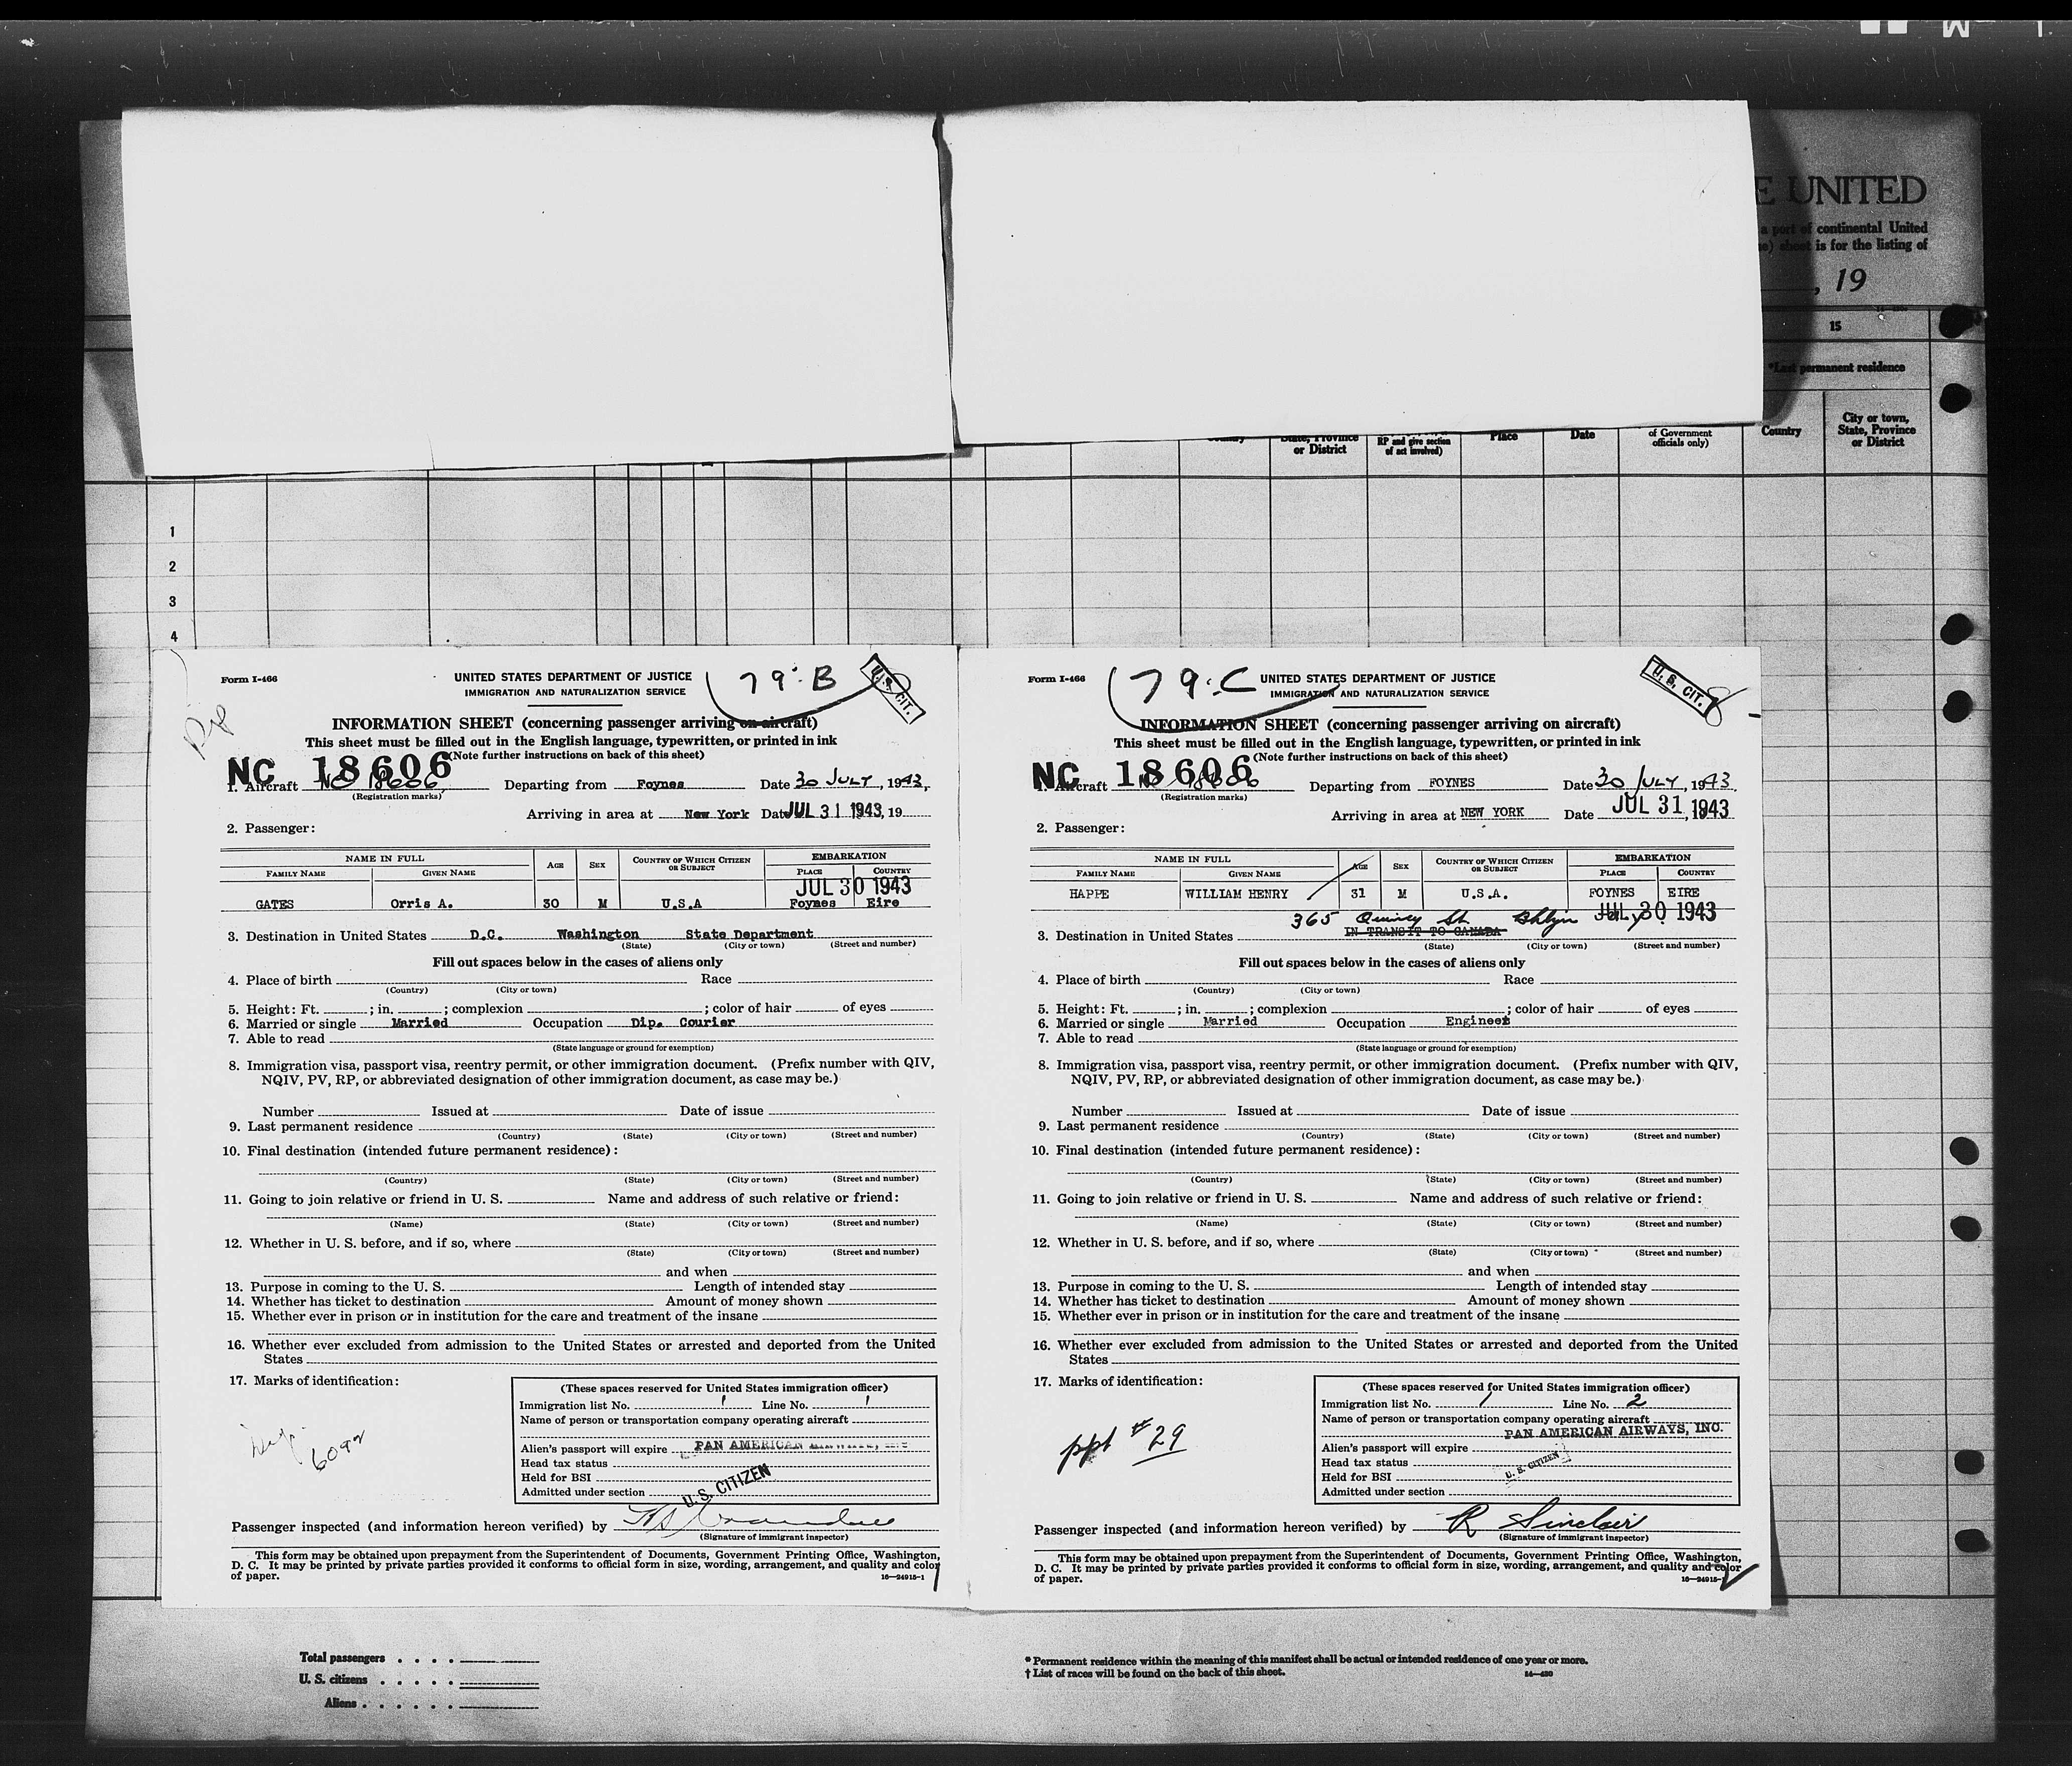 E UNITED
a port of continental United
e) sheet is for the listing of
, 19
15
*Last permanent residence
Country
State, Province
or District
RP and give section
of act involved)
Place
Date
of Government
officials only)
Country
City or town,
State, Province
or District
1
2
3
4
Form I-466
UNITED STATES DEPARTMENT OF JUSTICE
79:B
U.S. CIT.
IMMIGRATION AND NATURALIZATION SERVICE
INFORMATION SHEET (concerning passenger arriving on aircraft)
This sheet must be filled out in the English language, typewritten, or printed in ink
(Note further instructions on back of this sheet)
NC 18606
1. Aircraft NC 18606 Departing from Foynes Date 30 JULY, 1943,
(Registration marks)
Arriving in area at New York Date JUL 31 1943, 19
2. Passenger:
NAME IN FULL
FAMILY NAME GIVEN NAME AGE SEX COUNTRY OF WHICH CITIZEN OR SUBJECT EMBARKATION
PLACE COUNTRY
JUL 30 1943
GATES Orris A. 30 M U.S.A Foynes Eire
3. Destination in United States D.C. Washington State Department
(State) (City or town) (Street and number)
Fill out spaces below in the cases of aliens only
4. Place of birth Race
(Country) (City or town)
5. Height: Ft. ; in. ; complexion ; color of hair of eyes
6. Married or single Married Occupation Dip. Courier
7. Able to read
(State language or ground for exemption)
8. Immigration visa, passport visa, reentry permit, or other immigration document. (Prefix number with QIV,
NQIV, PV, RP, or abbreviated designation of other immigration document, as case may be.)
Number Issued at Date of issue
9. Last permanent residence
(Country) (State) (City or town) (Street and number)
10. Final destination (intended future permanent residence):
(Country) (State) (City or town) (Street and number)
11. Going to join relative or friend in U. S. Name and address of such relative or friend:
(Name) (State) (City or town) (Street and number)
12. Whether in U. S. before, and if so, where
(State) (City or town) (Street and number)
and when
13. Purpose in coming to the U. S. Length of intended stay
14. Whether has ticket to destination Amount of money shown
15. Whether ever in prison or in institution for the care and treatment of the insane
16. Whether ever excluded from admission to the United States or arrested and deported from the United
States
17. Marks of identification:
6092
(These spaces reserved for United States immigration officer)
Immigration list No. 1 Line No. 1
Name of person or transportation company operating aircraft
Alien's passport will expire PAN AMERICAN AIRWAYS, INC
Head tax status
Held for BSI
U.S. CITIZEN
Admitted under section
Passenger inspected (and information hereon verified) by
(Signature of immigrant inspector)
This form may be obtained upon prepayment from the Superintendent of Documents, Government Printing Office, Washington,
D. C. It may be printed by private parties provided it conforms to official form in size, wording, arrangement, and quality and color
of paper.
16—24915-1
Form I-466
79:C
UNITED STATES DEPARTMENT OF JUSTICE
U. S. CIT.
8
IMMIGRATION AND NATURALIZATION SERVICE
INFORMATION SHEET (concerning passenger arriving on aircraft)
This sheet must be filled out in the English language, typewritten, or printed in ink
(Note further instructions on back of this sheet)
NC 18606
1. Aircraft NC 18606 Departing from FOYNES Date 30 JULY, 1943.
(Registration marks)
Arriving in area at NEW YORK Date JUL 31, 1943
2. Passenger:
NAME IN FULL
FAMILY NAME GIVEN NAME AGE SEX COUNTRY OF WHICH CITIZEN OR SUBJECT EMBARKATION
PLACE COUNTRY
HAPPE WILLIAM HENRY 31 M U.S.A. FOYNES EIRE
365 Quincy St Bklyn N.Y. JUL 30 1943
3. Destination in United States IN TRANSIT TO CANADA
(State) (City or town) (Street and number)
Fill out spaces below in the cases of aliens only
4. Place of birth Race
(Country) (City or town)
5. Height: Ft. ; in. ; complexion ; color of hair of eyes
6. Married or single Married Occupation Engineer
7. Able to read
(State language or ground for exemption)
8. Immigration visa, passport visa, reentry permit, or other immigration document. (Prefix number with QIV,
NQIV, PV, RP, or abbreviated designation of other immigration document, as case may be.)
Number Issued at Date of issue
9. Last permanent residence
(Country) (State) (City or town) (Street and number)
10. Final destination (intended future permanent residence):
(Country) (State) (City or town) (Street and number)
11. Going to join relative or friend in U. S. Name and address of such relative or friend:
(Name) (State) (City or town) (Street and number)
12. Whether in U. S. before, and if so, where
(State) (City or town) (Street and number)
and when
13. Purpose in coming to the U. S. Length of intended stay
14. Whether has ticket to destination Amount of money shown
15. Whether ever in prison or in institution for the care and treatment of the insane
16. Whether ever excluded from admission to the United States or arrested and deported from the United
States
17. Marks of identification:
ppt # 29
(These spaces reserved for United States immigration officer)
Immigration list No. 1 Line No. 2
Name of person or transportation company operating aircraft
PAN AMERICAN AIRWAYS, INC.
Alien's passport will expire
Head tax status
U. S. CITIZEN
Held for BSI
Admitted under section
Passenger inspected (and information hereon verified) by R Sinclair
(Signature of immigrant inspector)
This form may be obtained upon prepayment from the Superintendent of Documents, Government Printing Office, Washington,
D. C. It may be printed by private parties provided it conforms to official form in size, wording, arrangement, and quality and color
of paper.
16—24915-1
Total passengers
U. S. citizens
Aliens
* Permanent residence within the meaning of this manifest shall be actual or intended residence of one year or more.
† List of races will be found on the back of this sheet.